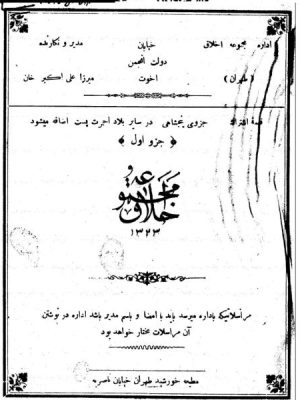 اداره مجموعه اخلاق
خیابان
مدیر و نگارنده
دولت انجمن
(طهران)
اخوت
میرزا علی اکبر خان
قیمة اشتراک جزوی پنجشاهی در سایر بلاد اجرت پست اضافه میشود
﴿ جزو اول ﴾
مجموعه اخلاق
۱۳۲۳
مراسلاتیکه باداره میرسد باید با امضا و باسم مدیر باشد اداره در نوشتن
آن مراسلات مختار خواهد بود
مطبعه خورشید طهران خیابان ناصریه